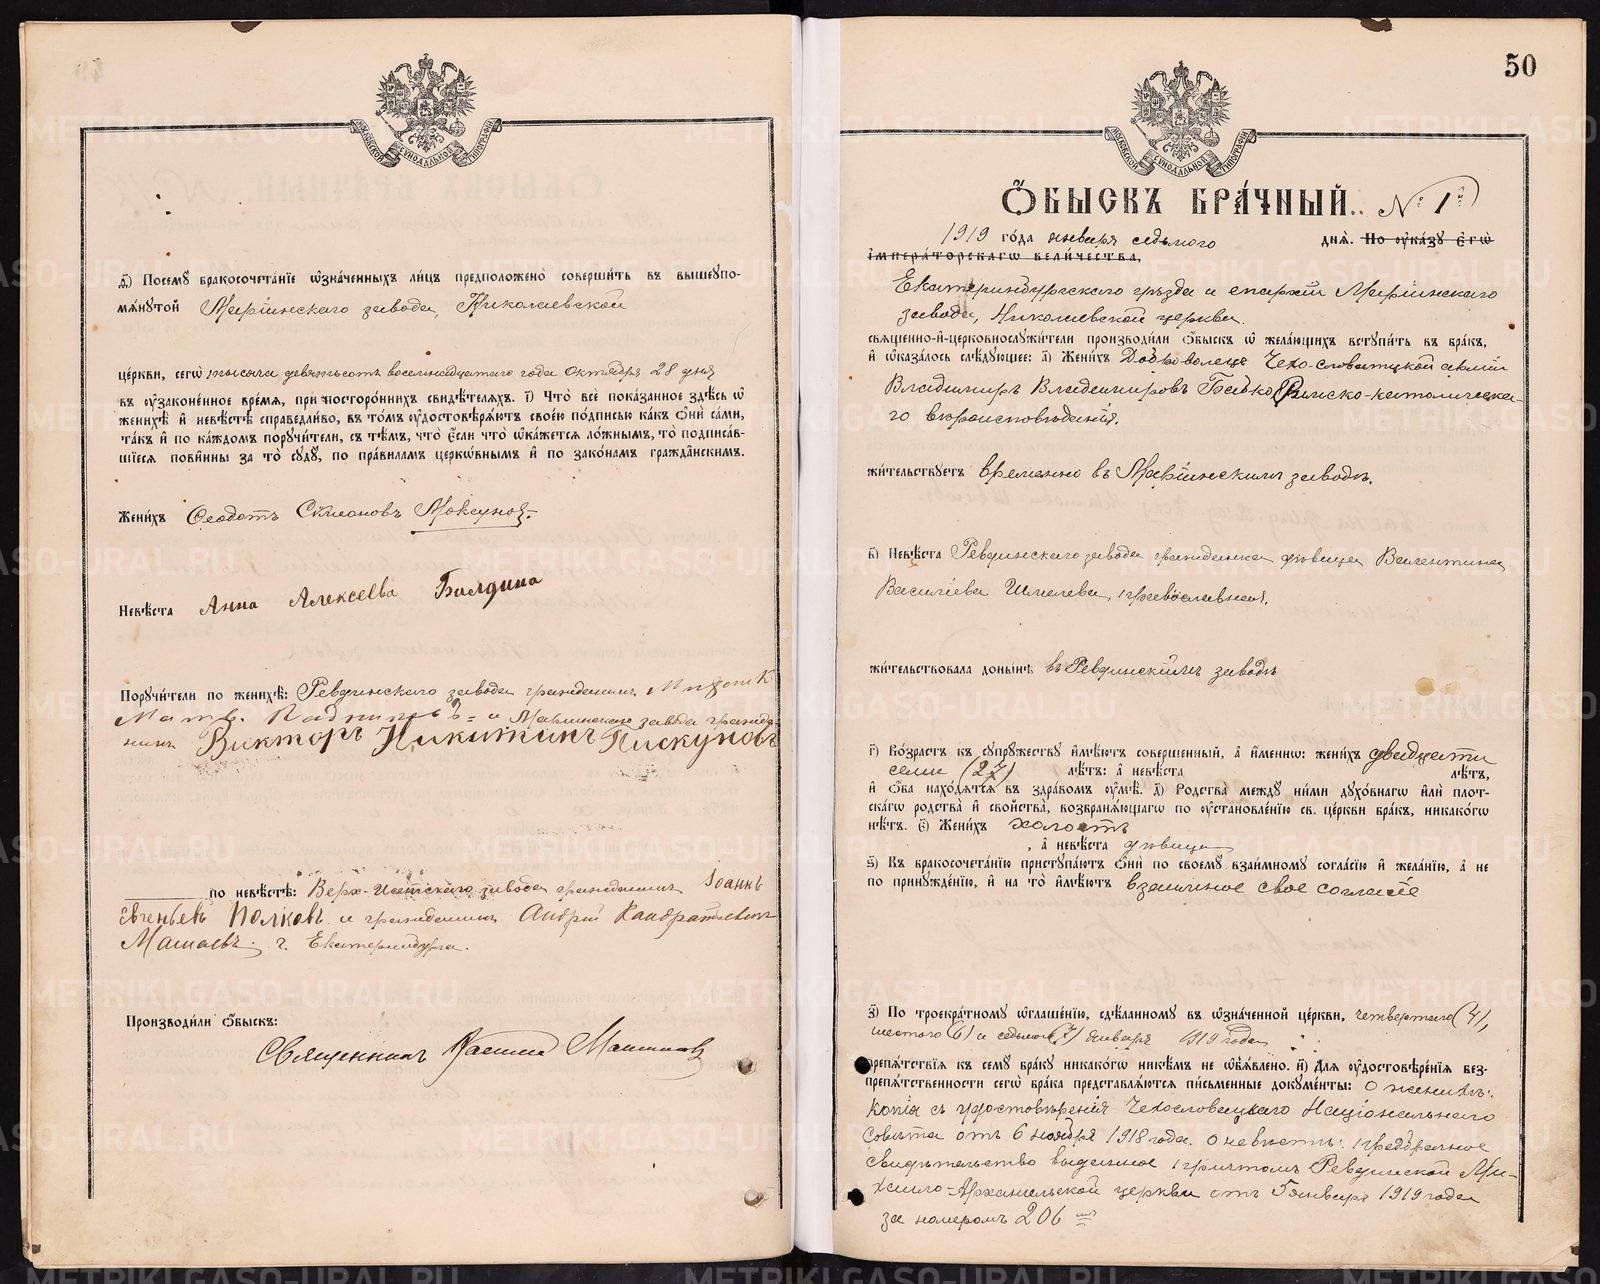 д҃) Посему бракосочетанїе ѡзначенныхъ лицъ предположено совершить въ вышеупо-
мянутой Марiинскаго завода, Николаевской
церкви, сегѡ тысяча девятьсотъ восемнадцатаго года Октября 28 дня
въ узаконенное время, при постороннихъ свидѣтеляхъ. і҃) Что всѐ показанное здѣсь ѡ
женихѣ и невѣстѣ справедливо, въ томъ удостовѣряютъ своею подписью какъ они сами,
такъ и по каждомъ поручители, съ тѣмъ, что если что ѡкажется ложнымъ, то подписав-
шїеся повинны за то суду, по правиламъ церкѡвнымъ и по законамъ гражданскимъ.
Женихъ Ѳеодотъ Симеоновъ
Невѣста Анна Алексеева Болдина
Поручители по женихѣ: Ревдинскаго завода гражданинъ
Матв. и Марiинскаго завода гражда-
нинъ Викторъ Никитинъ Пискуновъ
по невѣстѣ: Верх-Исетскаго завода гражданинъ Іоаннъ
Евгеньевъ Волковъ и гражданинъ Андрей Кандратьевич
г. Екатеринбурга.
Производили обыскъ:
Священникъ
50
МОСКОВСКОЙ СѴНОДАЛЬНОЙ ТИПОГРАФІИ
МОСКОВСКОЙ СѴНОДАЛЬНОЙ ТИПОГРАФІИ
Ѻбыскъ брачный. № 1й
1919 года января седьмого дня. По указу Егѡ
Императорскагѡ Величества,
Екатеринбургскаго уѣзда и епархiи Марiинскаго
завода, Николаевской церкви
священно-и-церковнослужители производили обыскъ ѡ желающихъ вступить въ бракъ,
и ѡказалось слѣдующее: а҃) Женихъ Доброволецъ Чехо-словацкой армiи
Владимиръ Владимировъ Римско-католическа-
го вѣроисповѣданiя.
жительствуетъ временно въ Марiинскомъ заводѣ.
в҃) Невѣста Ревдинскаго завода гражданка дѣвица Валентина
Василiева Шмелева, православная.
жительствовала донынѣ въ Ревдинскомъ заводѣ
г҃) Возрастъ къ супружеству имѣютъ совершенный, а именнѡ: женихъ двадцати
семи (27) лѣтъ: а невѣста лѣтъ,
и оба находятся въ здравомъ умѣ. д҃) Родства между ними духовнагѡ или плот-
скагѡ родства и свойства, возбраняющагѡ по установленію св. церкви бракъ, никакогѡ
нѣтъ. є҃) Женихъ холостъ
, а невѣста дѣвица
ѕ҃) Къ бракосочетанїю приступаютъ они по своему взаимному согласїю и желанїю, а не
по принужденїю, и на то имѣютъ взаимное свое согласiе
з҃) По троекратному ѡглашенїю, сдѣланному въ ѡзначенной церкви, четвертаго (4),
шестого (6) и седьмого (7) января 1919 года
препятствїя къ сему браку никакогѡ никѣмъ не ѡбъявлено. и҃) Для удостовѣренїя без-
препятственности сегѡ брака представляются письменные документы: о женихѣ:
копiя съ удостовѣренiя Чехословацкаго Нацiональнаго
Совѣта отъ 6 ноября 1918 года. о невѣстѣ: предбрачное
свидѣтельство выданное причтомъ Ревдинской Ми-
хаило-Архангельской церкви отъ 5 января 1919 года
за номеромъ 206
METRIKI.GASO-URAL.RU